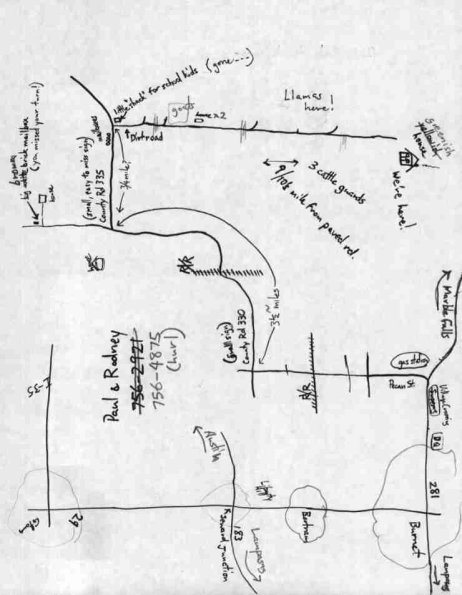 little "shack" for school kids (gone---)
goats
x2
Llamas here!
greenish
yellowish
house
We're here!
Dirt road
3 cattle guards
9/10th mile from paved rd.
(small, easy to miss sign)
County Rd 335
big white brick mailbox
(you missed your turn!)
R/R
3½ miles
(small sign)
County Rd 330
Marble Falls
gas station
Pecan St.
R/R
Paul & Rodney
756-2921
756-4875
(hurl)
I-35
Austin
DQ
281
Burnet
Lampasas
Bertram
Liberty Hill
183
Seward Junction
Lampasas
29